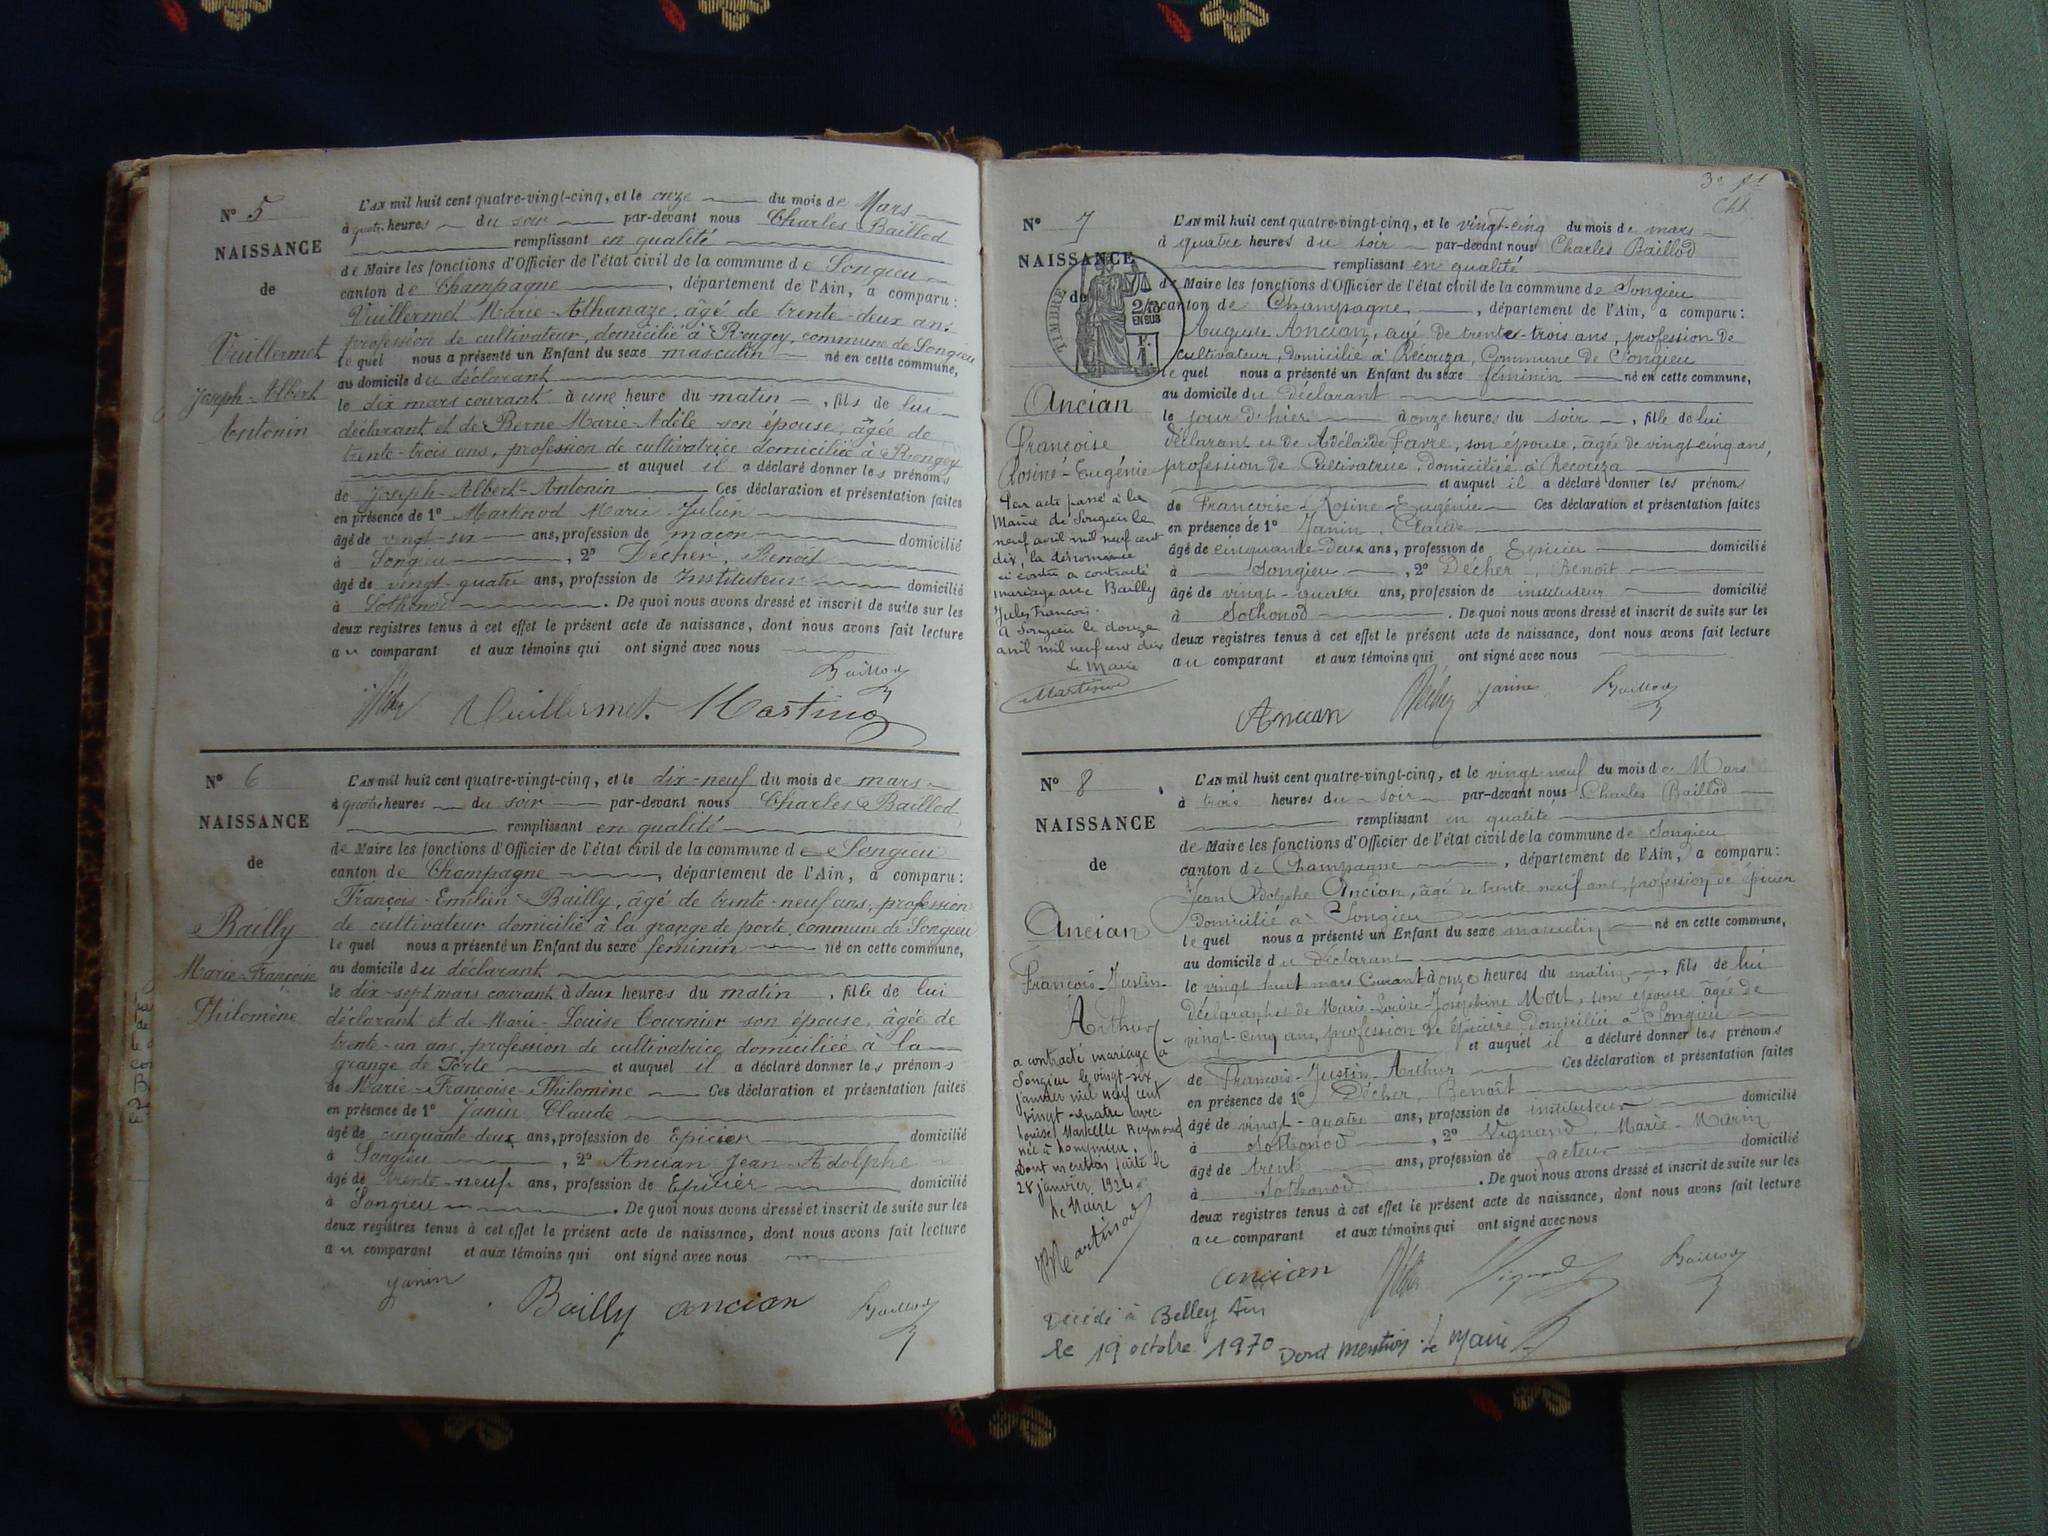 N° 5
NAISSANCE
de
Vuillermet
Joseph-Albert
Antonin
L'AN mil huit cent quatre-vingt-cinq, et le onze du mois de Mars
à quatre heures du soir par-devant nous Charles Baillod
remplissant en qualité
de Maire les fonctions d'Officier de l'état civil de la commune de Songieu
canton de Champagne, département de l'Ain, a comparu :
Vuillermet Marie-Athanaze, âgé de trente-deux ans
profession de cultivateur, domicilié à Rongey, commune de Songieu
le quel nous a présenté un Enfant du sexe masculin né en cette commune,
au domicile du déclarant
le dix mars courant à une heure du matin, fils de lui
déclarant et de Berne Marie-Adèle son épouse, âgée de
trente-trois ans, profession de cultivatrice domiciliée à Rongey
et auquel il a déclaré donner les prénoms
de Joseph-Albert-Antonin Ces déclaration et présentation faites
en présence de 1° Martinod Marie Julien
âgé de vingt-six ans, profession de maçon domicilié
à Songieu, 2° Décher, Benoit
âgé de vingt-quatre ans, profession de Instituteur domicilié
à Sothonod. De quoi nous avons dressé et inscrit de suite sur les
deux registres tenus à cet effet le présent acte de naissance, dont nous avons fait lecture
au comparant et aux témoins qui ont signé avec nous
Baillod
Vuillermet Martinod
N° 6
NAISSANCE
de
Bailly
Marie-Françoise
Philomène
L'AN mil huit cent quatre-vingt-cinq, et le dix-neuf du mois de mars
à quatre heures du soir par-devant nous Charles Baillod
remplissant en qualité
de Maire les fonctions d'Officier de l'état civil de la commune de Songieu
canton de Champagne, département de l'Ain, a comparu :
François-Emilien Bailly, âgé de trente-neuf ans, profession
de cultivateur domicilié à la grange de porte, commune de Songieu
le quel nous a présenté un Enfant du sexe feminin né en cette commune,
au domicile du déclarant
le dix-sept mars courant à deux heures du matin, fille de lui
déclarant et de Marie-Louise Tournier son épouse, âgée de
trente-un ans, profession de cultivatrice domiciliée à la
grange de Porte et auquel il a déclaré donner les prénoms
de Marie-Françoise-Philomène Ces déclaration et présentation faites
en présence de 1° Janin Claude
âgé de cinquante-deux ans, profession de Epicier domicilié
à Songieu, 2° Ancian Jean-Adolphe
âgé de trente-neuf ans, profession de Epicier domicilié
à Songieu. De quoi nous avons dressé et inscrit de suite sur les
deux registres tenus à cet effet le présent acte de naissance, dont nous avons fait lecture
au comparant et aux témoins qui ont signé avec nous
Janin
Bailly ancian Baillod
N° 7
NAISSANCE
de
TIMBRE
2/10
EN SUS
Ancian
Françoise
Rosine-Eugénie
Par acte passé à la
Mairie de Songieu le
neuf avril mil neuf cent
dix, la dénommée
ci contre a contracté
mariage avec Bailly
Jules François.
A Songieu le douze
avril mil neuf cent dix
Le Maire
Martinod
L'AN mil huit cent quatre-vingt-cinq, et le vingt-cinq du mois de mars
à quatre heures du soir par-devant nous Charles Baillod
remplissant en qualité
de Maire les fonctions d'Officier de l'état civil de la commune de Songieu
canton de Champagne, département de l'Ain, a comparu :
Auguste Ancian, agé de trente-trois ans, profession de
cultivateur, domicilié à Récouza, Commune de Songieu
le quel nous a présenté un Enfant du sexe féminin né en cette commune,
au domicile du déclarant
le jour de hier à onze heures du soir, fille de lui
déclarant et de Adélaïde Favre, son épouse, âgée de vingt-cinq ans,
profession de Cultivatrice, domiciliée à Recouza
et auquel il a déclaré donner les prénoms
de Françoise-Rosine-Eugénie Ces déclaration et présentation faites
en présence de 1° Janin, Claude
âgé de cinquante-deux ans, profession de Epicier domicilié
à Songieu, 2° Décher, Benoît
âgé de vingt-quatre ans, profession de instituteur domicilié
à Sothonod. De quoi nous avons dressé et inscrit de suite sur les
deux registres tenus à cet effet le présent acte de naissance, dont nous avons fait lecture
au comparant et aux témoins qui ont signé avec nous
Ancian Janin Baillod
N° 8
NAISSANCE
de
Ancian
François-Justin-
Arthur
a contracté mariage à
Songieu le vingt-six
janvier mil neuf cent
vingt-quatre avec
Louise Marcelle Reymond
née à
Dont mention faite le
28 janvier 1924
Le Maire
Martinod
L'AN mil huit cent quatre-vingt-cinq, et le vingt-neuf du mois de Mars
à trois heures du soir par-devant nous Charles Baillod
remplissant en qualité
de Maire les fonctions d'Officier de l'état civil de la commune de Songieu
canton de Champagne, département de l'Ain, a comparu :
Jean Adolphe Ancian, âgé de trente neuf ans, profession de épicier
domicilié à Songieu
le quel nous a présenté un Enfant du sexe masculin né en cette commune,
au domicile du déclarant
le vingt huit mars Courant à onze heures du matin, fils de lui
déclarant et de Marie-Louise-Joséphine Mort, son épouse âgée de
vingt-cinq ans, profession de épicière domiciliée à Songieu
et auquel il a déclaré donner les prénoms
de François-Justin-Arthur Ces déclaration et présentation faites
en présence de 1° Décher, Benoît
âgé de vingt-quatre ans, profession de instituteur domicilié
à Sothonod, 2° Vignand, Marie-Marin
âgé de trent ans, profession de facteur domicilié
à Sothonod. De quoi nous avons dressé et inscrit de suite sur les
deux registres tenus à cet effet le présent acte de naissance, dont nous avons fait lecture
au comparant et aux témoins qui ont signé avec nous
ancian Vignand Baillod
Décédé à Belley Ain
le 19 octobre 1970 Dont mention. Le Maire